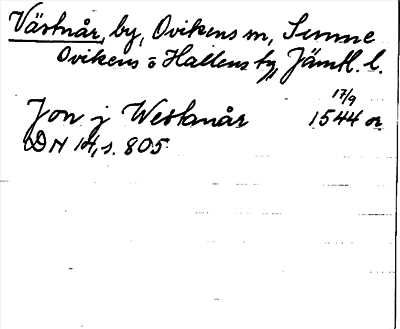 Västnår, by, Ovikens sn, Sunne
Ovikens o Hallens tg, Jämtl. l.
17/9
Jon j Westanår 1544 or
DN 14, s. 805